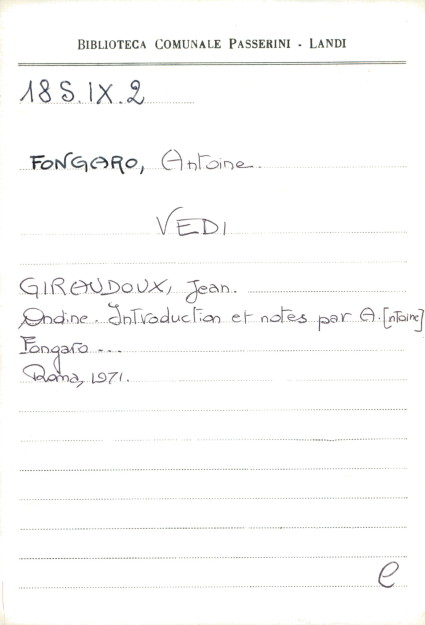 BIBLIOTECA COMUNALE PASSERINI - LANDI
18 S.IX.2
FONGARO, Antoine.
VEDI
GIRAUDOUX, Jean.
Ondine. Introduction et notes par A.[ntoine]
Fongaro ...
Roma, 1971.
e